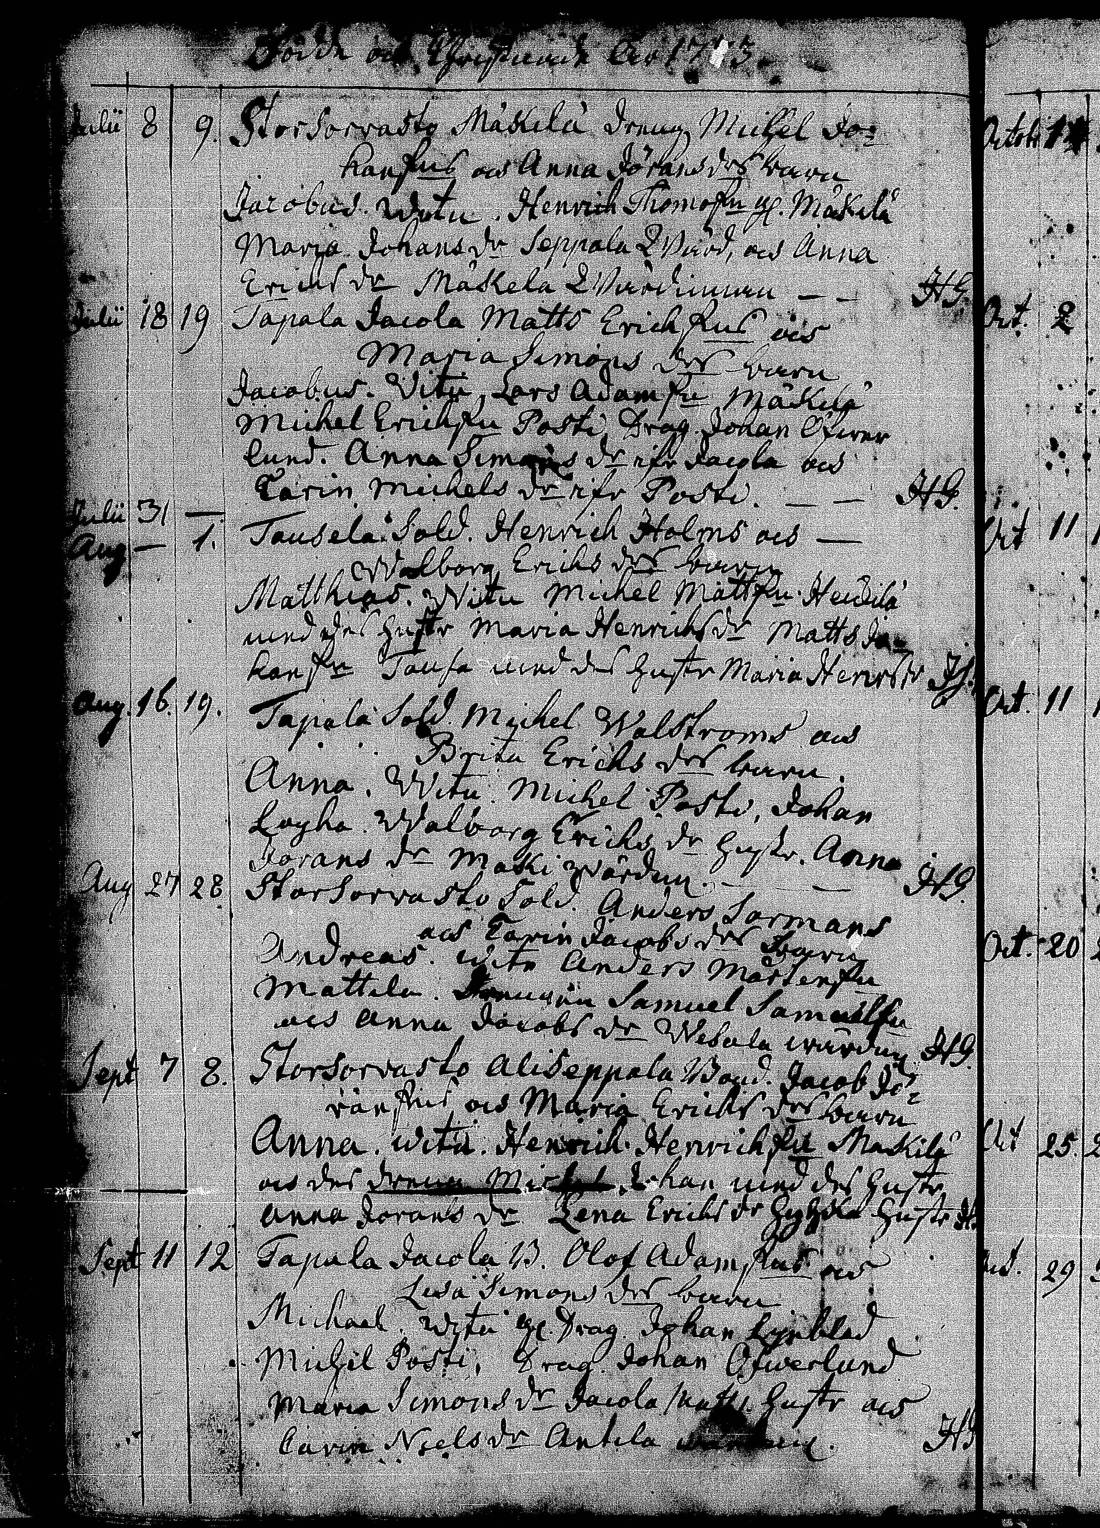 Födde och Christnade År 17 3.
Julii 8 9. Storsorvasto Mäkilä dreng Michel Jo=
hansus och Anna Jöransdrs barn
Jacobus. Witn. Henrich Thomass. Mäkilä
Maria Johans dr Seppala Wärd, och Anna
Erichs dr Mäkela Wärdinnan — —
HG.
Julii 18 19 Tapala Jacola Matts Erichsus och
Maria Simons drs barn
Jacobus. Vitn. Lars Adamsn Mäkilä
Michel Erichsn Posti, Drag. Johan Öfwer
lund. Anna Simons dr ifr Jacola och
Carin Michels dr ifr Posti. — —
HG.
Julii 31 —
Aug — 1. Tausela Sold. Henrich Holms och —
Walborg Erichs drs barn
Matthias. Witn Michel Mattsn Heickilä
med des hustr Maria Henrichs dr Matts Jo=
hansn Tausa med des hustr Maria Henrs dr
Aug. 16. 19. Tapala Sold. Michel Walstroms och
Brita Erichs drs barn.
Anna. Witn. Michel Posti, Johan
Walborg Erichs dr hustr. Anna
Jörans dr Mäki wärdin. — —
HG.
Aug 27 28. Storsorvasto Sold. Anders Sormans
och Carin Jacobs drs barn
Andreas. Witn Anders Mårtensn
Mattila. Samuel Samuelsn
och Anna Jacobs dr Wesala wärdin
HG.
Sept 7 8. Storsorvasto Aliseppala Bond. Jacob Jö=
ransus och Maria Erichs drs barn
Anna. witn. Henrich Henrichsn Mäkilä
och des Johan med des hustr
Anna Jörans dr Lena Erichs dr hustr
Sept 11 12 Tapala Jacola B. Olof Adamsus och
Lisa Simons drs barn
Michael. witn Drag. Johan
Michel Posti, Drag. Johan Öfwerlund
Maria Simons dr Jacola Matts hustr och
Carin Niels dr Antila
HG
Octob
Oct. 2
Oct 11
Oct. 11
Oct. 20
Oct 25.
Oct. 29